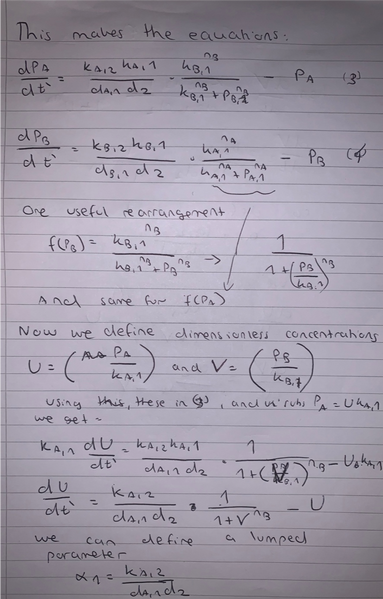 This makes the equations:
dPA/dt` = kA,2 kA,1 / dA,1 d2 · kB,1^nB / kB,1^nB + PB,1^nB − PA (3)
dPB/dt` = kB,2 kB,1 / dB,1 d2 · kA,1^nA / kA,1^nA + PA,1^nA − PB (4
One useful rearrangement
f(PB) = kB,1^nB / kB,1^nB + PB^nB → 1 / 1 + (PB/kB,1)^nB
And same for f(PA)
Now we define dimensionless concentrations
U = (PA/kA,1) and V = (PB/kB,1)
using this, these in (3), and PA = UkA,1
we get -
kA,1 dU/dt` = kA,2 kA,1 / dA,1 d2 · 1 / 1 + (V)^nB − U kA,1
dU/dt` = kA,2 / dA,1 d2 · 1 / 1 + V^nB − U
we can define a lumped
parameter
α1 = kA,2 / dA,1 d2